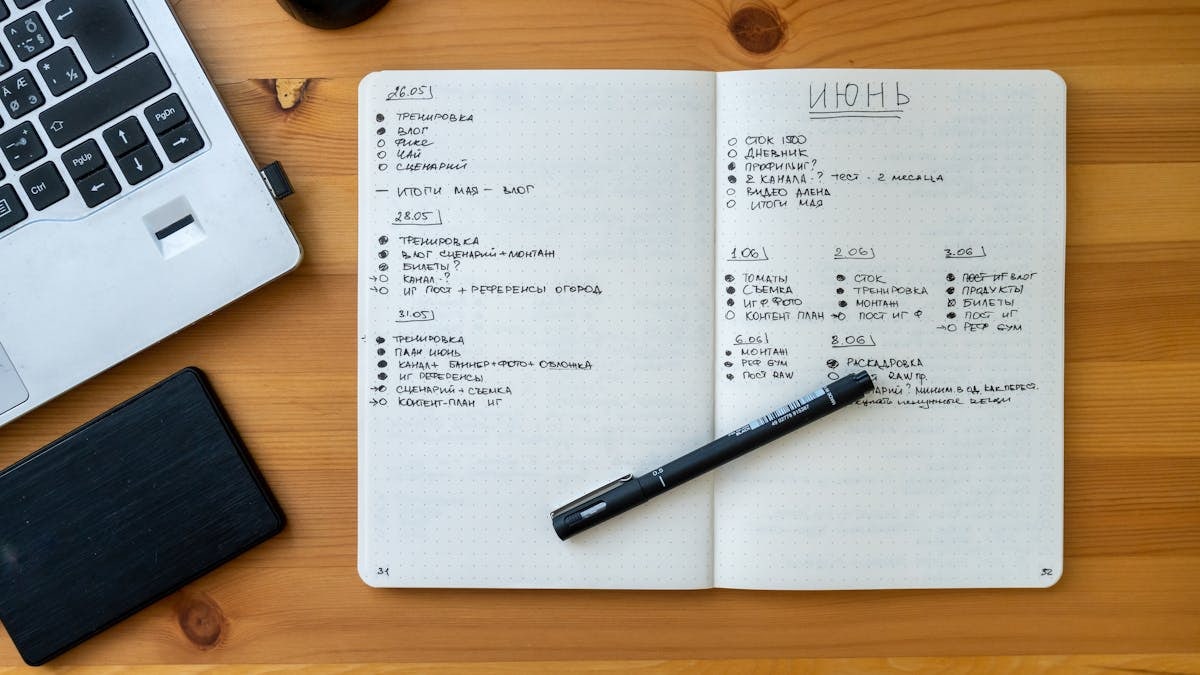 26.05
ТРЕНИРОВКА
ВЛОГ
ФИКС
ЧАЙ
СЦЕНАРИЙ
— ИТОГИ МАЯ – ВЛОГ
28.05
ТРЕНИРОВКА
ВЛОГ СЦЕНАРИЙ+МОНТАЖ
БИЛЕТЫ?
КАНАЛ-?
ИГ ПОСТ + РЕФЕРЕНСЫ ОГОРОД
31.05
ТРЕНИРОВКА
ПЛАН ИЮНЬ
КАНАЛ+ БАННЕР+ФОТО+ ОБЛОЖКА
ИГ РЕФЕРЕНСЫ
СЦЕНАРИЙ+СЪЕМКА
КОНТЕНТ-ПЛАН ИГ
31
ИЮНЬ
СТОК 1500
ДНЕВНИК
ПРОФИТ ИГ?
2 КАНАЛА-? ТЕСТ - 2 МЕСЯЦА
ВИДЕО
ИТОГИ МАЯ
1.06
ТОМАТЫ
СЪЕМКА
ИГ Ф ФОТО
КОНТЕНТ ПЛАН
2.06
СТОК
ТРЕНИРОВКА
МОНТАЖ
ПОСТ ИГ Ф
3.06
ПОСТ ИГ ВЛОГ
ПРОДУКТЫ
БИЛЕТЫ
ПОСТ ИГ
РЕФ БУМ
6.06
МОНТАЖ
РЕФ БУМ
ПОСТ RAW
8.06
РАСКАДРОВКА
RAW ПР.
МИНИМ. В ОД. КАК ПЕРЕСТ.
ненужные вещи
32
0.5
PgUp
PgDn
Ctrl